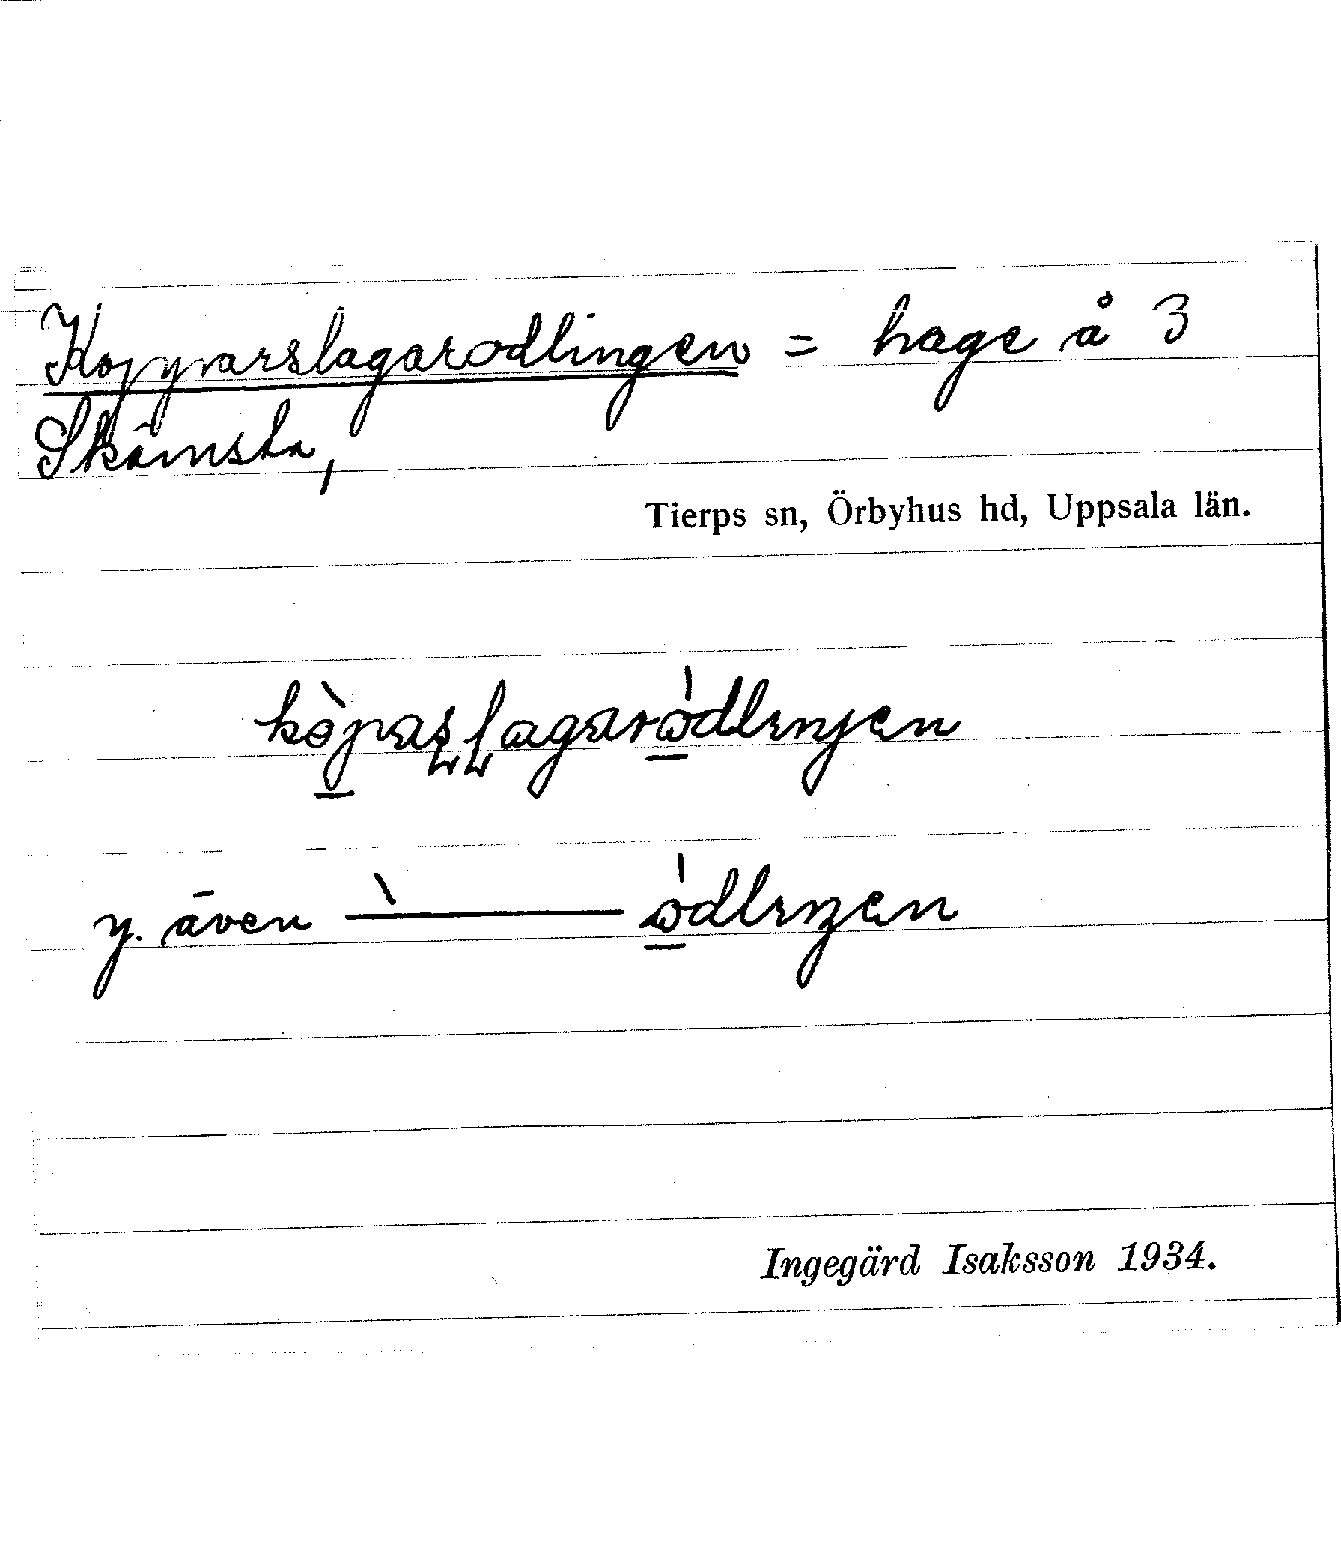 Kopparslagarodlingen = hage å 3
Skämsta,
Tierps sn, Örbyhus hd, Uppsala län.
y. även
Ingegärd Isaksson 1934.